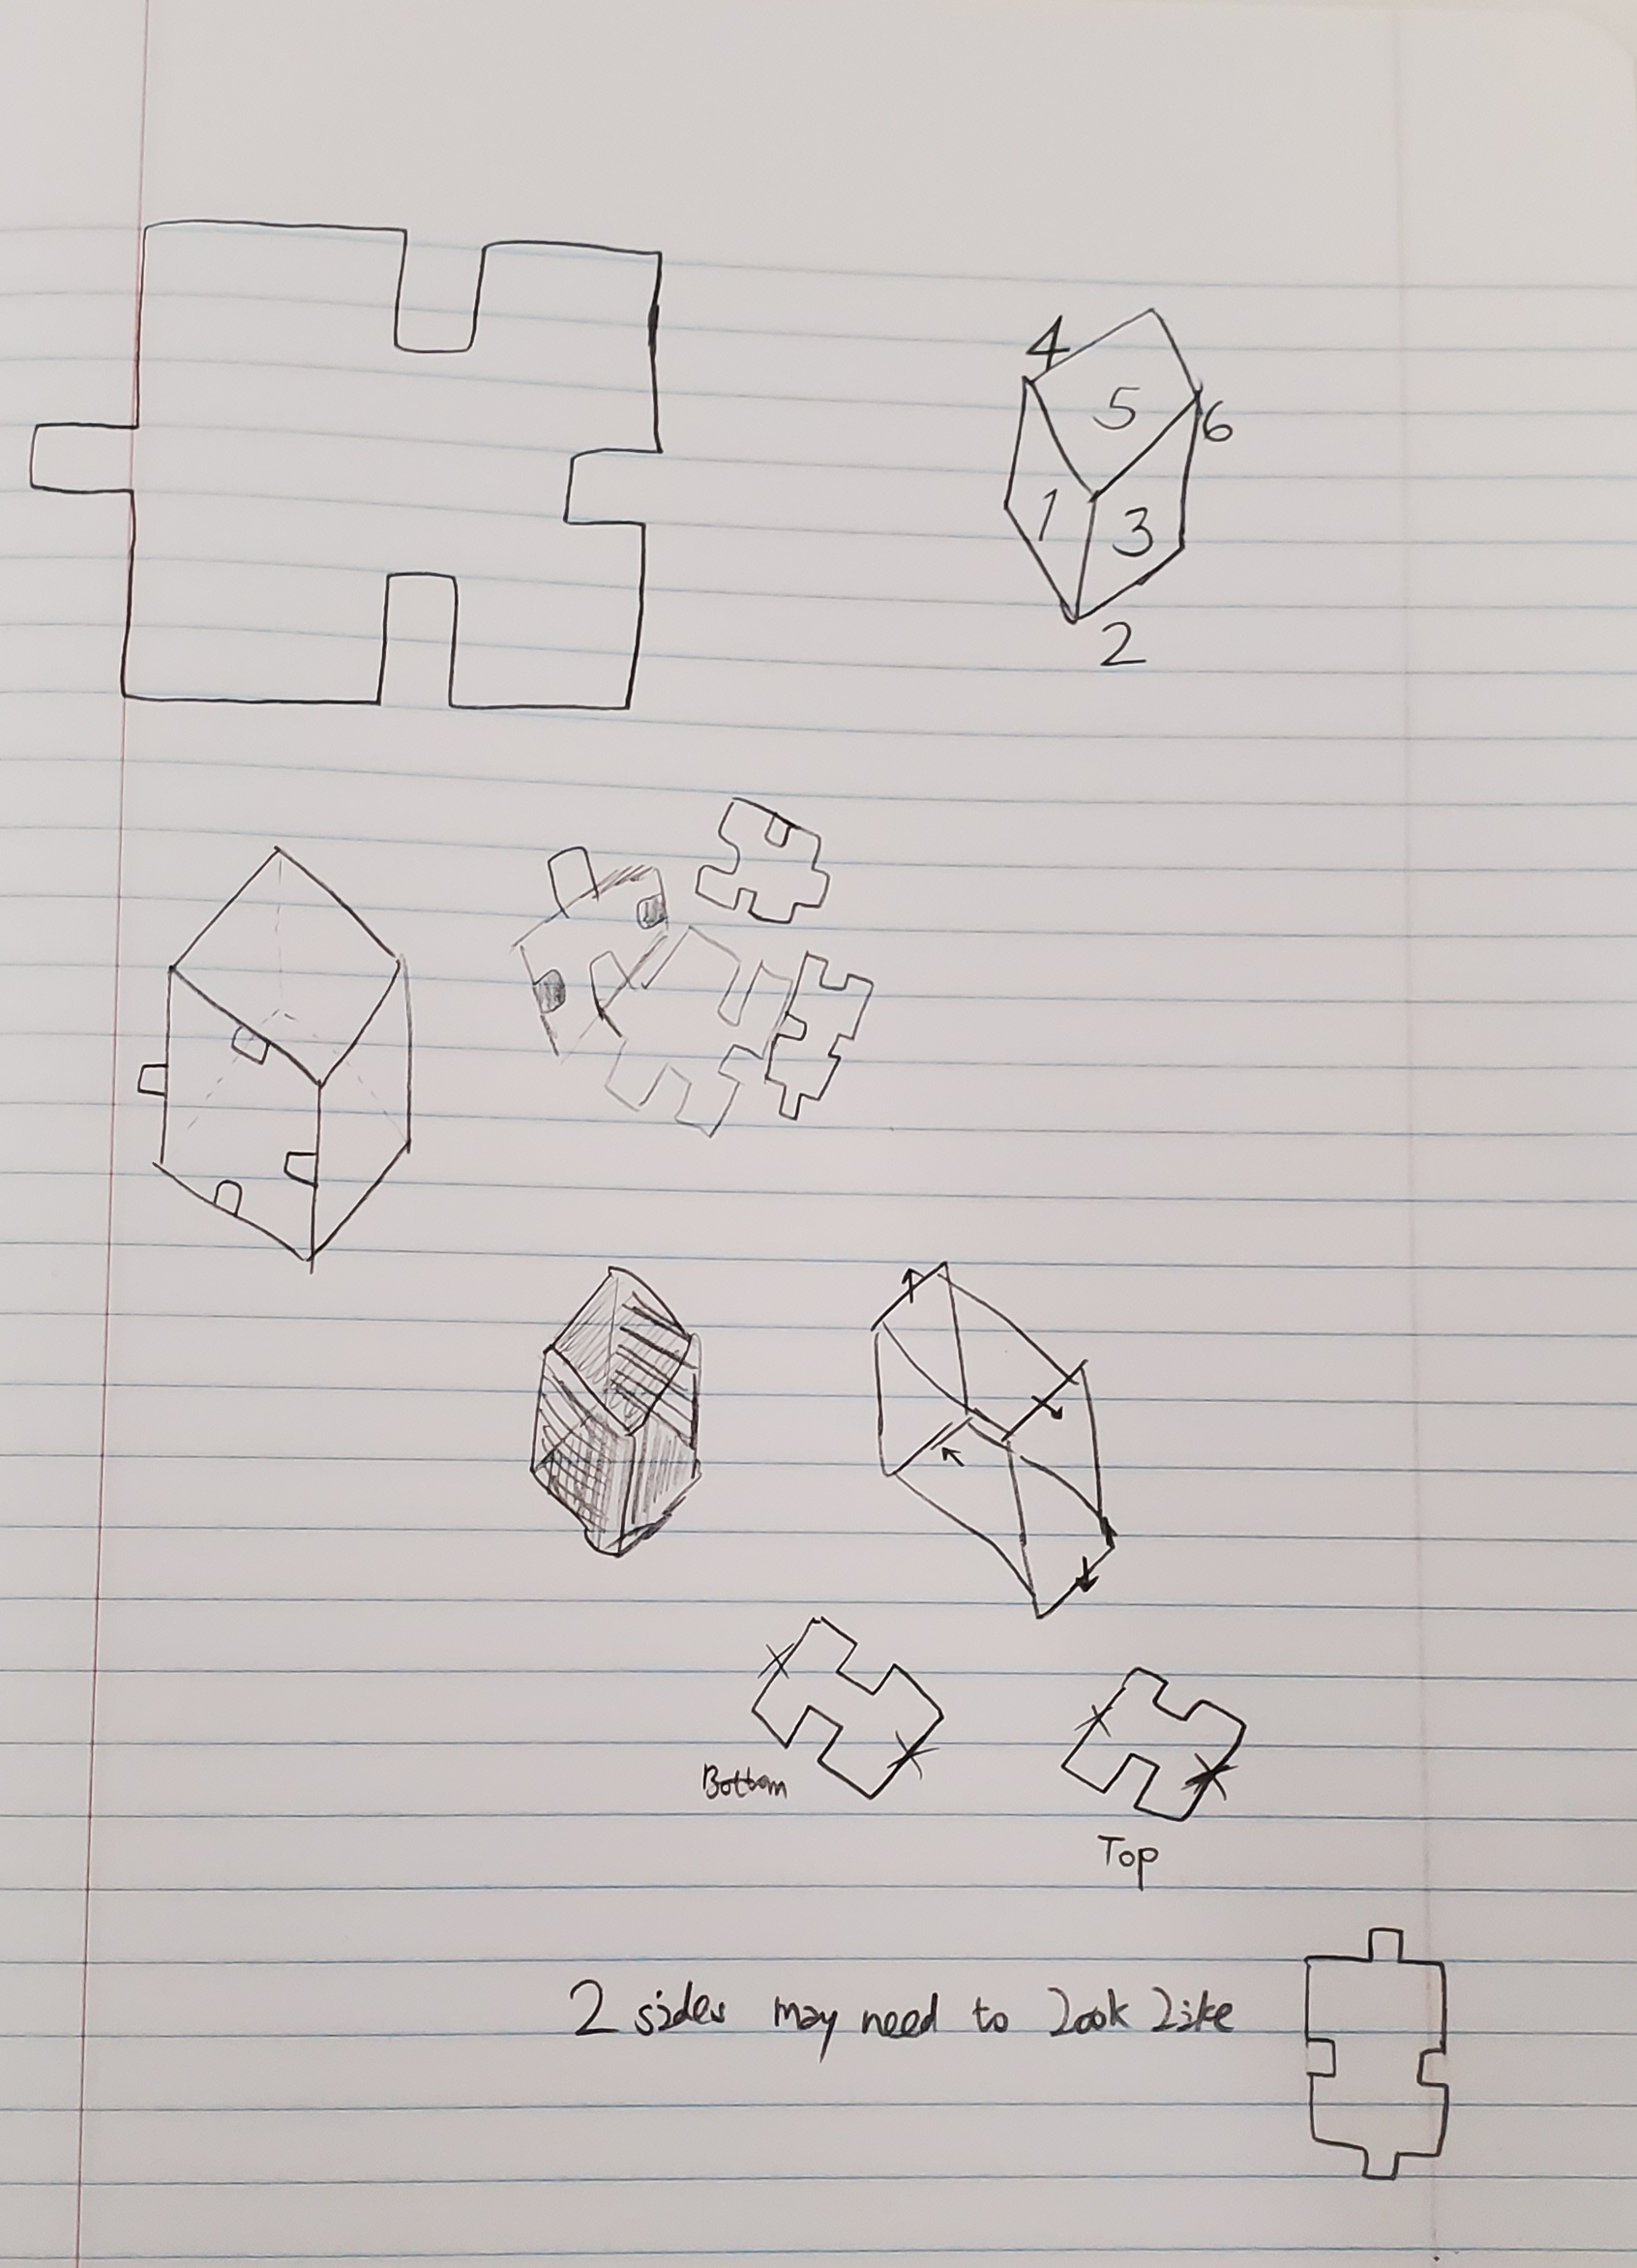 4
5
6
1
3
2
Bottom
Top
2 sides may need to look like